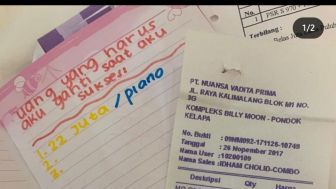 1/2
PSR S 970
Terbilang :
uang yang harus
aku ganti saat aku
sukses!
1. 22 juta/piano
2.
3.
PT. NUANSA VADITA PRIMA
JL. RAYA KALIMALANG BLOK M1 NO.
3G
KOMPLEKS BILLY MOON - PONDOK
KELAPA
No. Bukti : 09NM092-171126-10749
Tanggal : 26 Nopember 2017
Nama User : 10200109
Nama Sales : IDHAM CHOLID-COMBO
Deskripsi Qty Harga